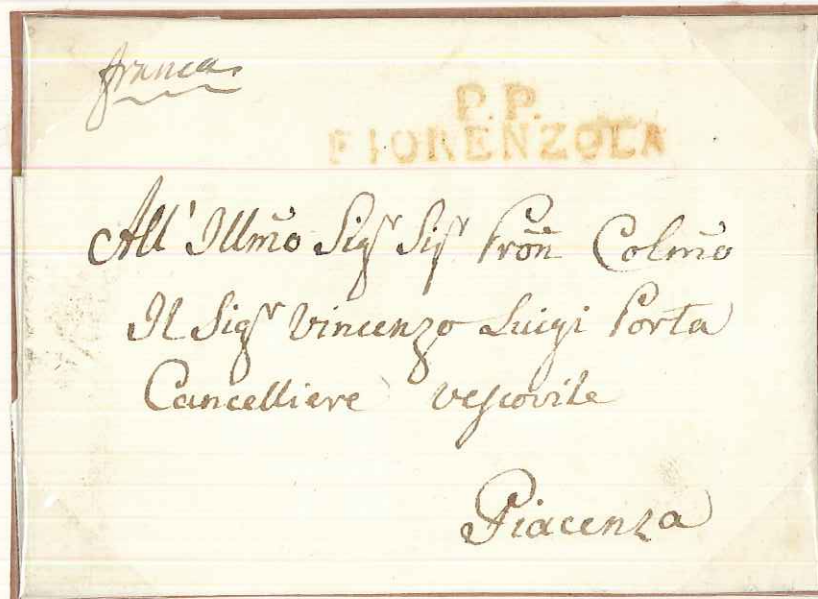 franca
P.P.
FIORENZOLA
All' Illmo Sigr Sigr Pron Colmo
Il Sigr Vincenzo Luigi Porta
Cancelliere vescovile
Piacenza